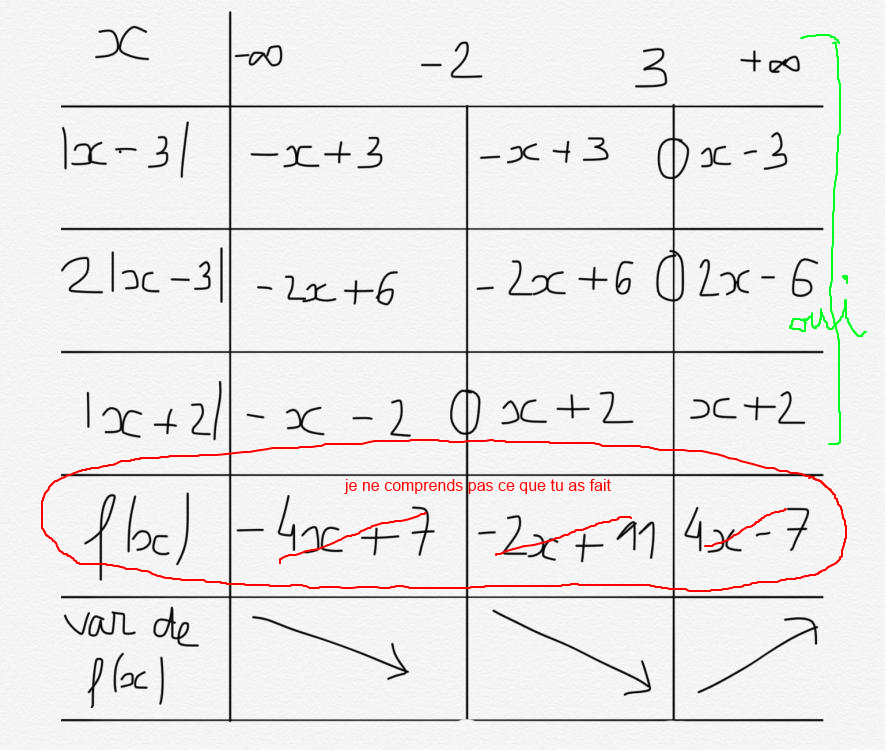 x -∞ -2 3 +∞
|x - 3| -x + 3 -x + 3 0 x - 3
2|x - 3| -2x + 6 -2x + 6 0 2x - 6
oui
|x + 2| -x - 2 0 x + 2 x + 2
je ne comprends pas ce que tu as fait
f(x) -4x + 7 -2x + 11 4x - 7
var de
f(x)